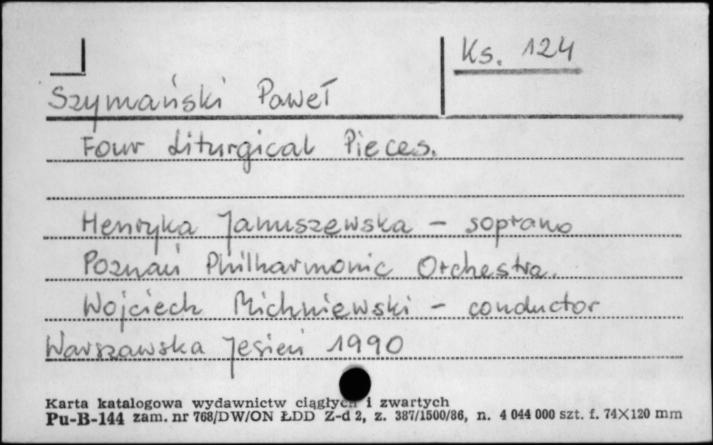 Ks. 124
Szymański Paweł
Four Liturgical Pieces.
Henryka Januszewska – soprano
Poznań Philharmonic Orchestra.
Wojciech Michniewski – conductor
Warszawska Jesień 1990
Karta katalogowa wydawnictw ciągłych i zwartych
Pu-B-144 zam. nr 768/DW/ON ŁDD Z-d 2, z. 387/1500/86, n. 4 044 000 szt. f. 74×120 mm